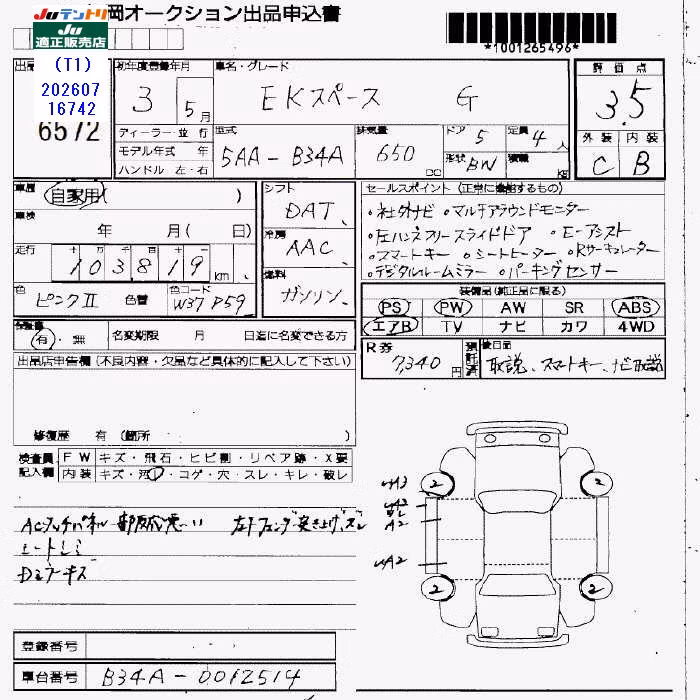 Juテントリ
Ju
適正販売店
岡オークション出品申込書
*1001265496*
出品
(T1)
202607
16742
6572
初年度登録年月
3 5月
車名・グレード
EKスペース G
評価点
3.5
外装 内装
C B
ディーラー・並行
モデル年式 年
ハンドル 左・右
型式
5AA-B34A
排気量
650 cc
ドア 5
形状 BN
定員 4人
積載 kg
車歴
自家用( )
車検
年 月( 日)
走行
十 万 千 百 十 一
103819 km
色
ピンクII 色替
色コード
W37 P59
シフト
DAT
冷房
AAC
燃料
ガソリン
セールスポイント (正常に機能するもの)
・社外ナビ ・マルチアラウンドモニター
・左ハンズフリースライドドア ・E-アシスト
・スマートキー ・シートヒーター ・Rサーキュレーター
・デジタルルームミラー ・パーキングセンサー
装備品(純正品に限る)
PS PW AW SR ABS
エアB TV ナビ カワ 4WD
保証書
有・無
名変期限 月 日迄に名変できる方
R券
7,340円
預託済
後日品
取説、スマートキー、ナビ取説
出品店申告欄(不良内容・欠品など具体的に記入して下さい)
修復歴 有 (箇所
検査員
記入欄
FW キズ・飛石・ヒビ割・リペア跡・X要
内装 キズ・汚・コゲ・穴・スレ・キレ・破レ
シートシミ
Dミラーキズ
2 2
2 2
A2
登録番号
車台番号 B34A-0012514